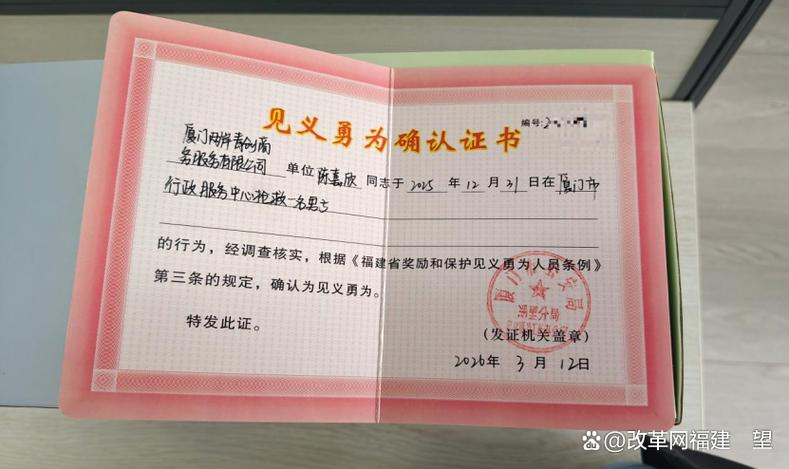 见义勇为确认证书
编号:2
厦门两岸青创商
务服务有限公司 单位 陈嘉欣 同志于 2025 年 12 月 31 日在 厦门市
行政服务中心抢救一名男士
的行为，经调查核实，根据《福建省奖励和保护见义勇为人员条例》
第三条的规定，确认为见义勇为。
特发此证。
(发证机关盖章)
2026年 3 月 12日
@改革网福建 望